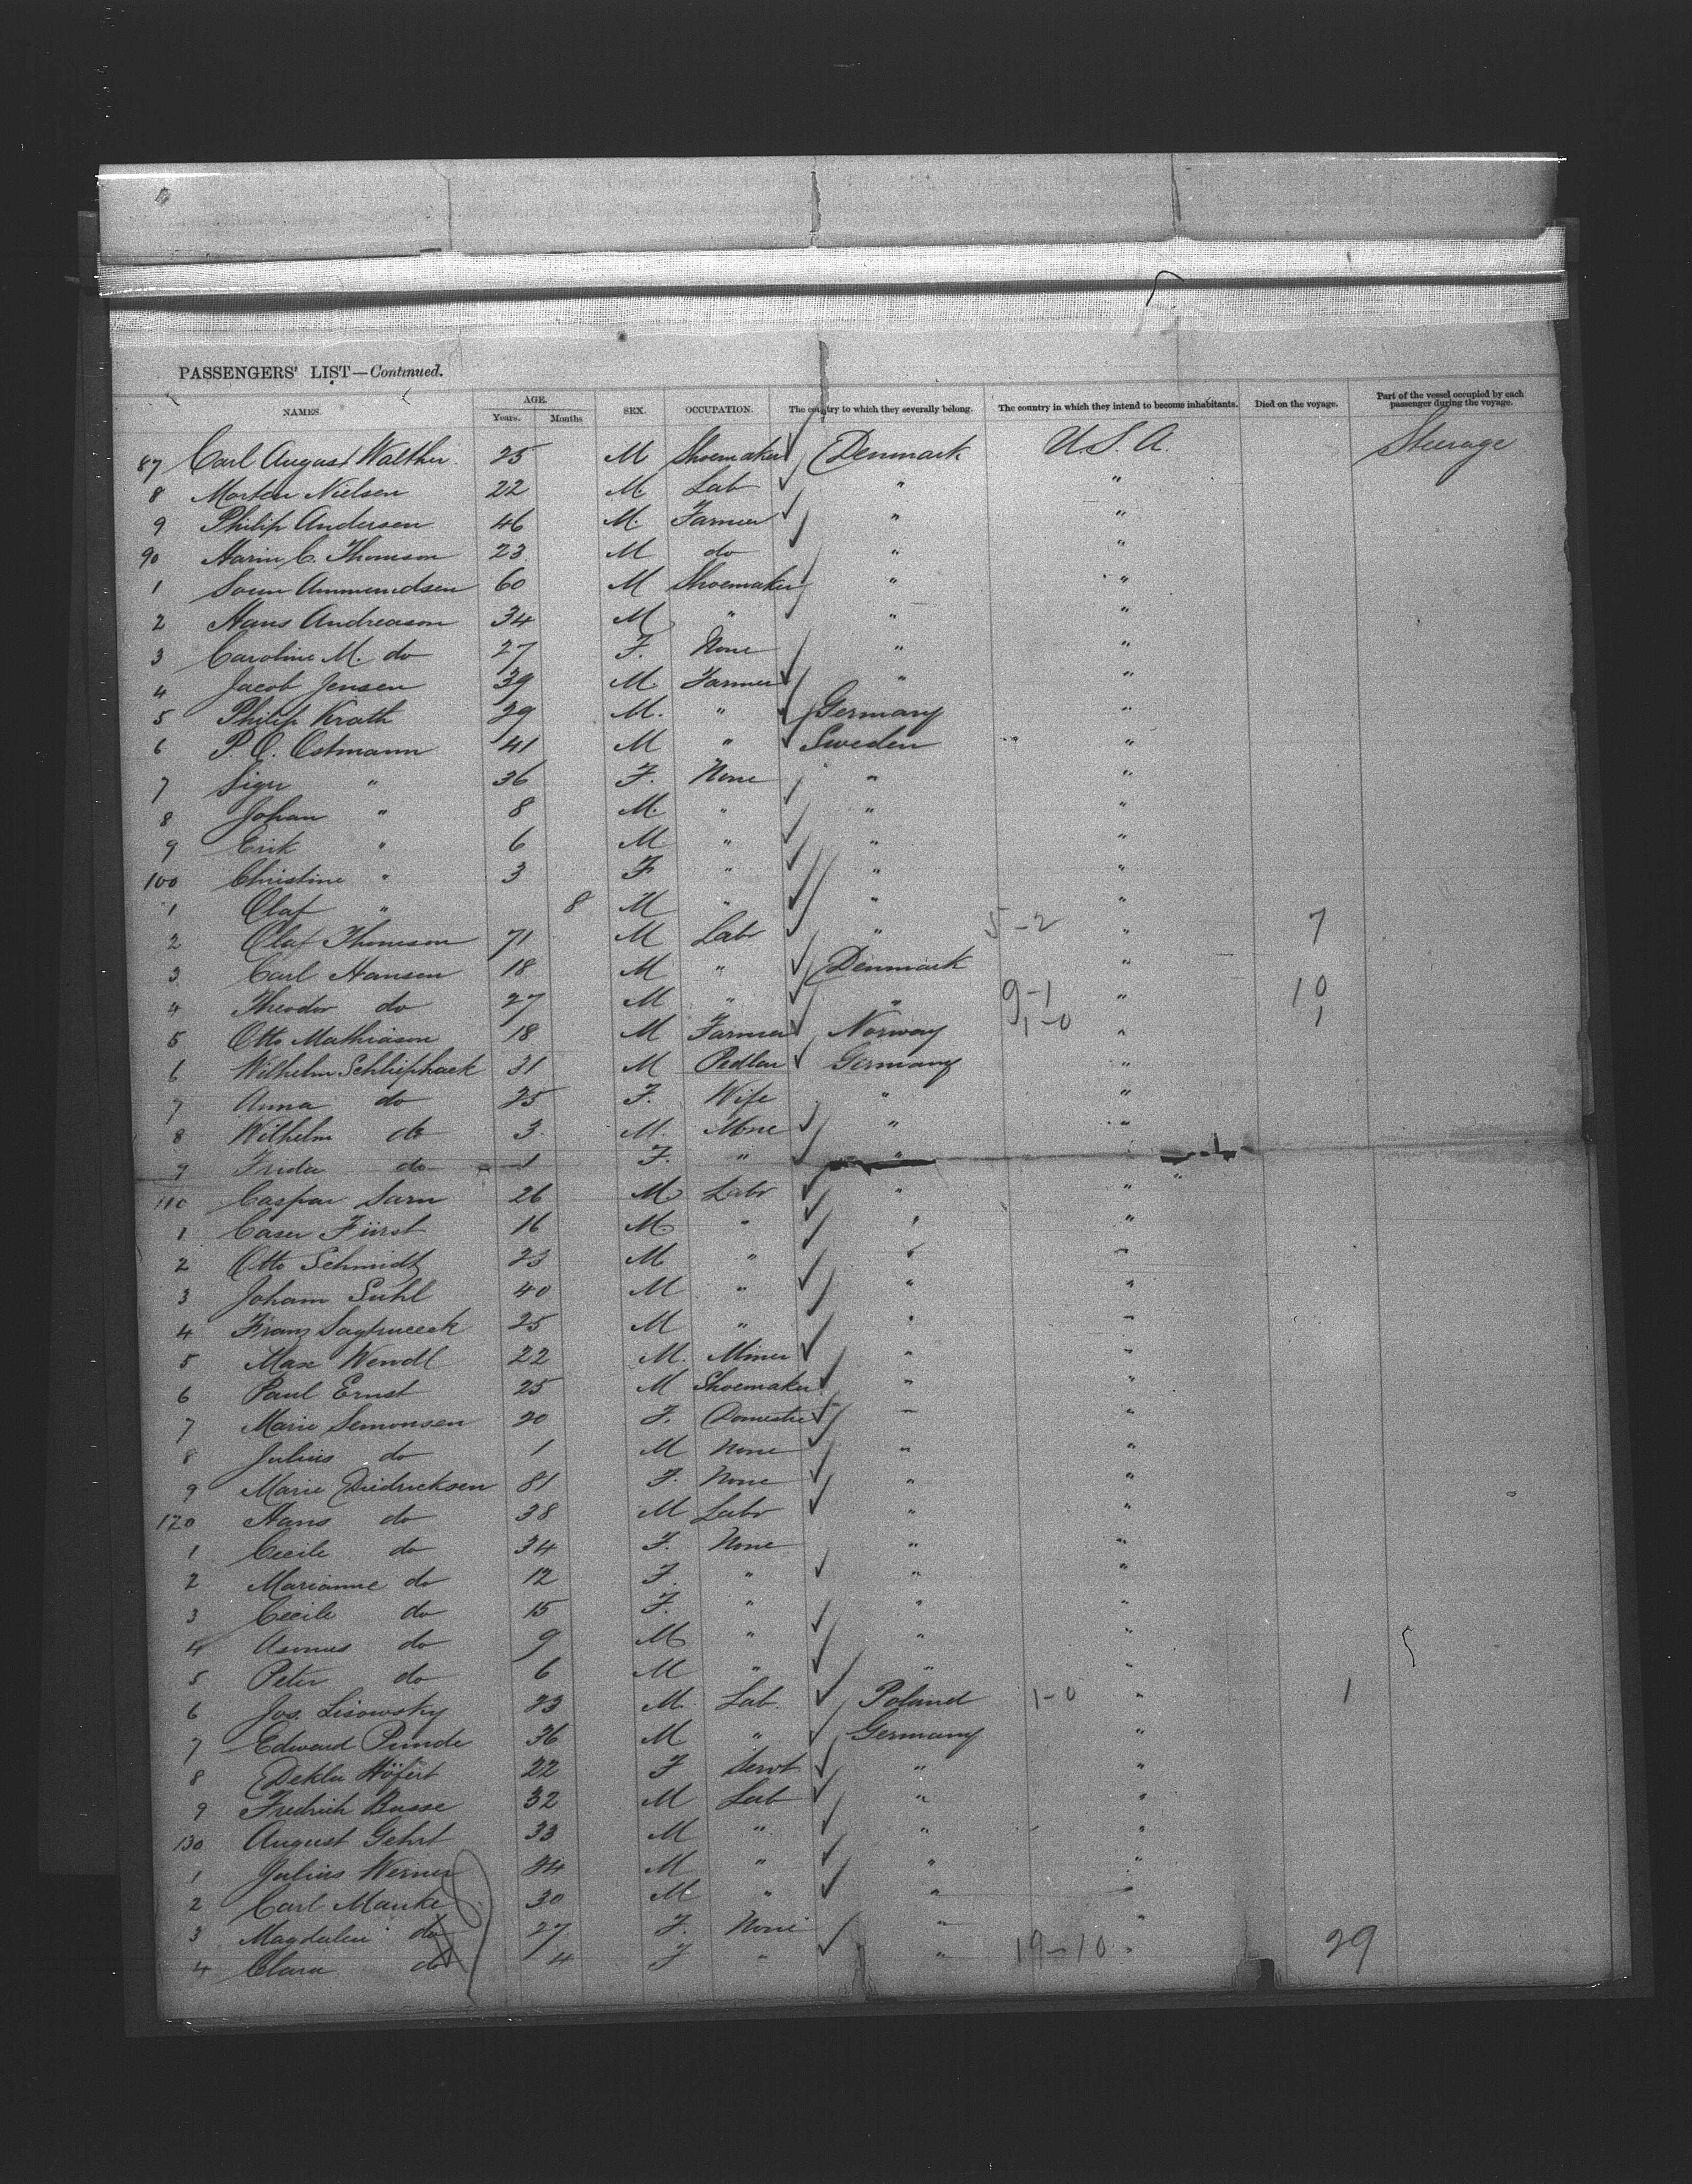 PASSENGERS' LIST—Continued.
NAMES. AGE. Years. Months SEX. OCCUPATION. The country to which they severally belong. The country in which they intend to become inhabitants. Died on the voyage. Part of the vessel occupied by each passenger during the voyage.
87 Carl August Walther 25 M Shoemaker Denmark U.S.A. Steerage
8 Morten Nielsen 22 M. Lab " "
9 Philip Andersen 46 M. Farmer " "
90 C. Thomson 23 M do " "
1 Soren Ammundsen 60 M Shoemaker " "
2 Hans Andreason 34 M " " "
3 Caroline M. do 27 F. None " "
4 Jacob Jensen 39 M. Farmer " "
5 Philip Krath 29 M. " Germany "
6 P. O. Ostmann 41 M " Sweden "
7 Sigri " 36 F. None " "
8 Johan " 8 M. " " "
9 Erik " 6 M. " " "
100 Christine " 3 F " " "
1 Olaf " 8 M " " "
2 Olaf Thomson 71 M Labr " 5-2 " 7
3 Carl Hansen 18 M " Denmark "
4 Theodor do 27 M " " 9-1 " 10
5 Otto Mathiason 18 M Farmer Norway 1-0 " 1
6 Wilhelm Schliephack 31 M Pedlar Germany "
7 Anna do 25 F. Wife " "
8 Wilhelm do 3 M. None " "
9 Frida do 1 F. " " "
110 Caspar Sarn 26 M Labr " "
1 Caser Fürst 16 M " " "
2 Otto Schmidt 23 M " " "
3 Joham Suhl 40 M " " "
4 Franz 25 M " " "
5 Max Wendl 22 M. Miner " "
6 Paul Ernst 25 M Shoemaker " "
7 Marie Semonsen 20 F. Domestic " "
8 Julius do 1 M None " "
9 Marie Diedricksen 81 F. None " "
120 Hans do 38 M Labr " "
1 Cecile do 34 F. None " "
2 Marianne do 12 F. " " "
3 Cecile do 15 F. " " "
4 Asmus do 9 M " " "
5 Peter do 6 M " " "
6 Jos. Lisowsky 23 M. Lab. Poland 1-0 " 1
7 Edward Pinde 36 M " Germany "
8 Dekla Höfert 22 F Servt " "
9 Fredrich Busse 32 M Lab " "
130 August Gehrt 33 M " " "
1 Julius Werner 24 M " " "
2 Carl Manke 30 M " " "
3 Magdalen do 27 F. None " "
4 Clara do 4 F " " 19-10 " 29